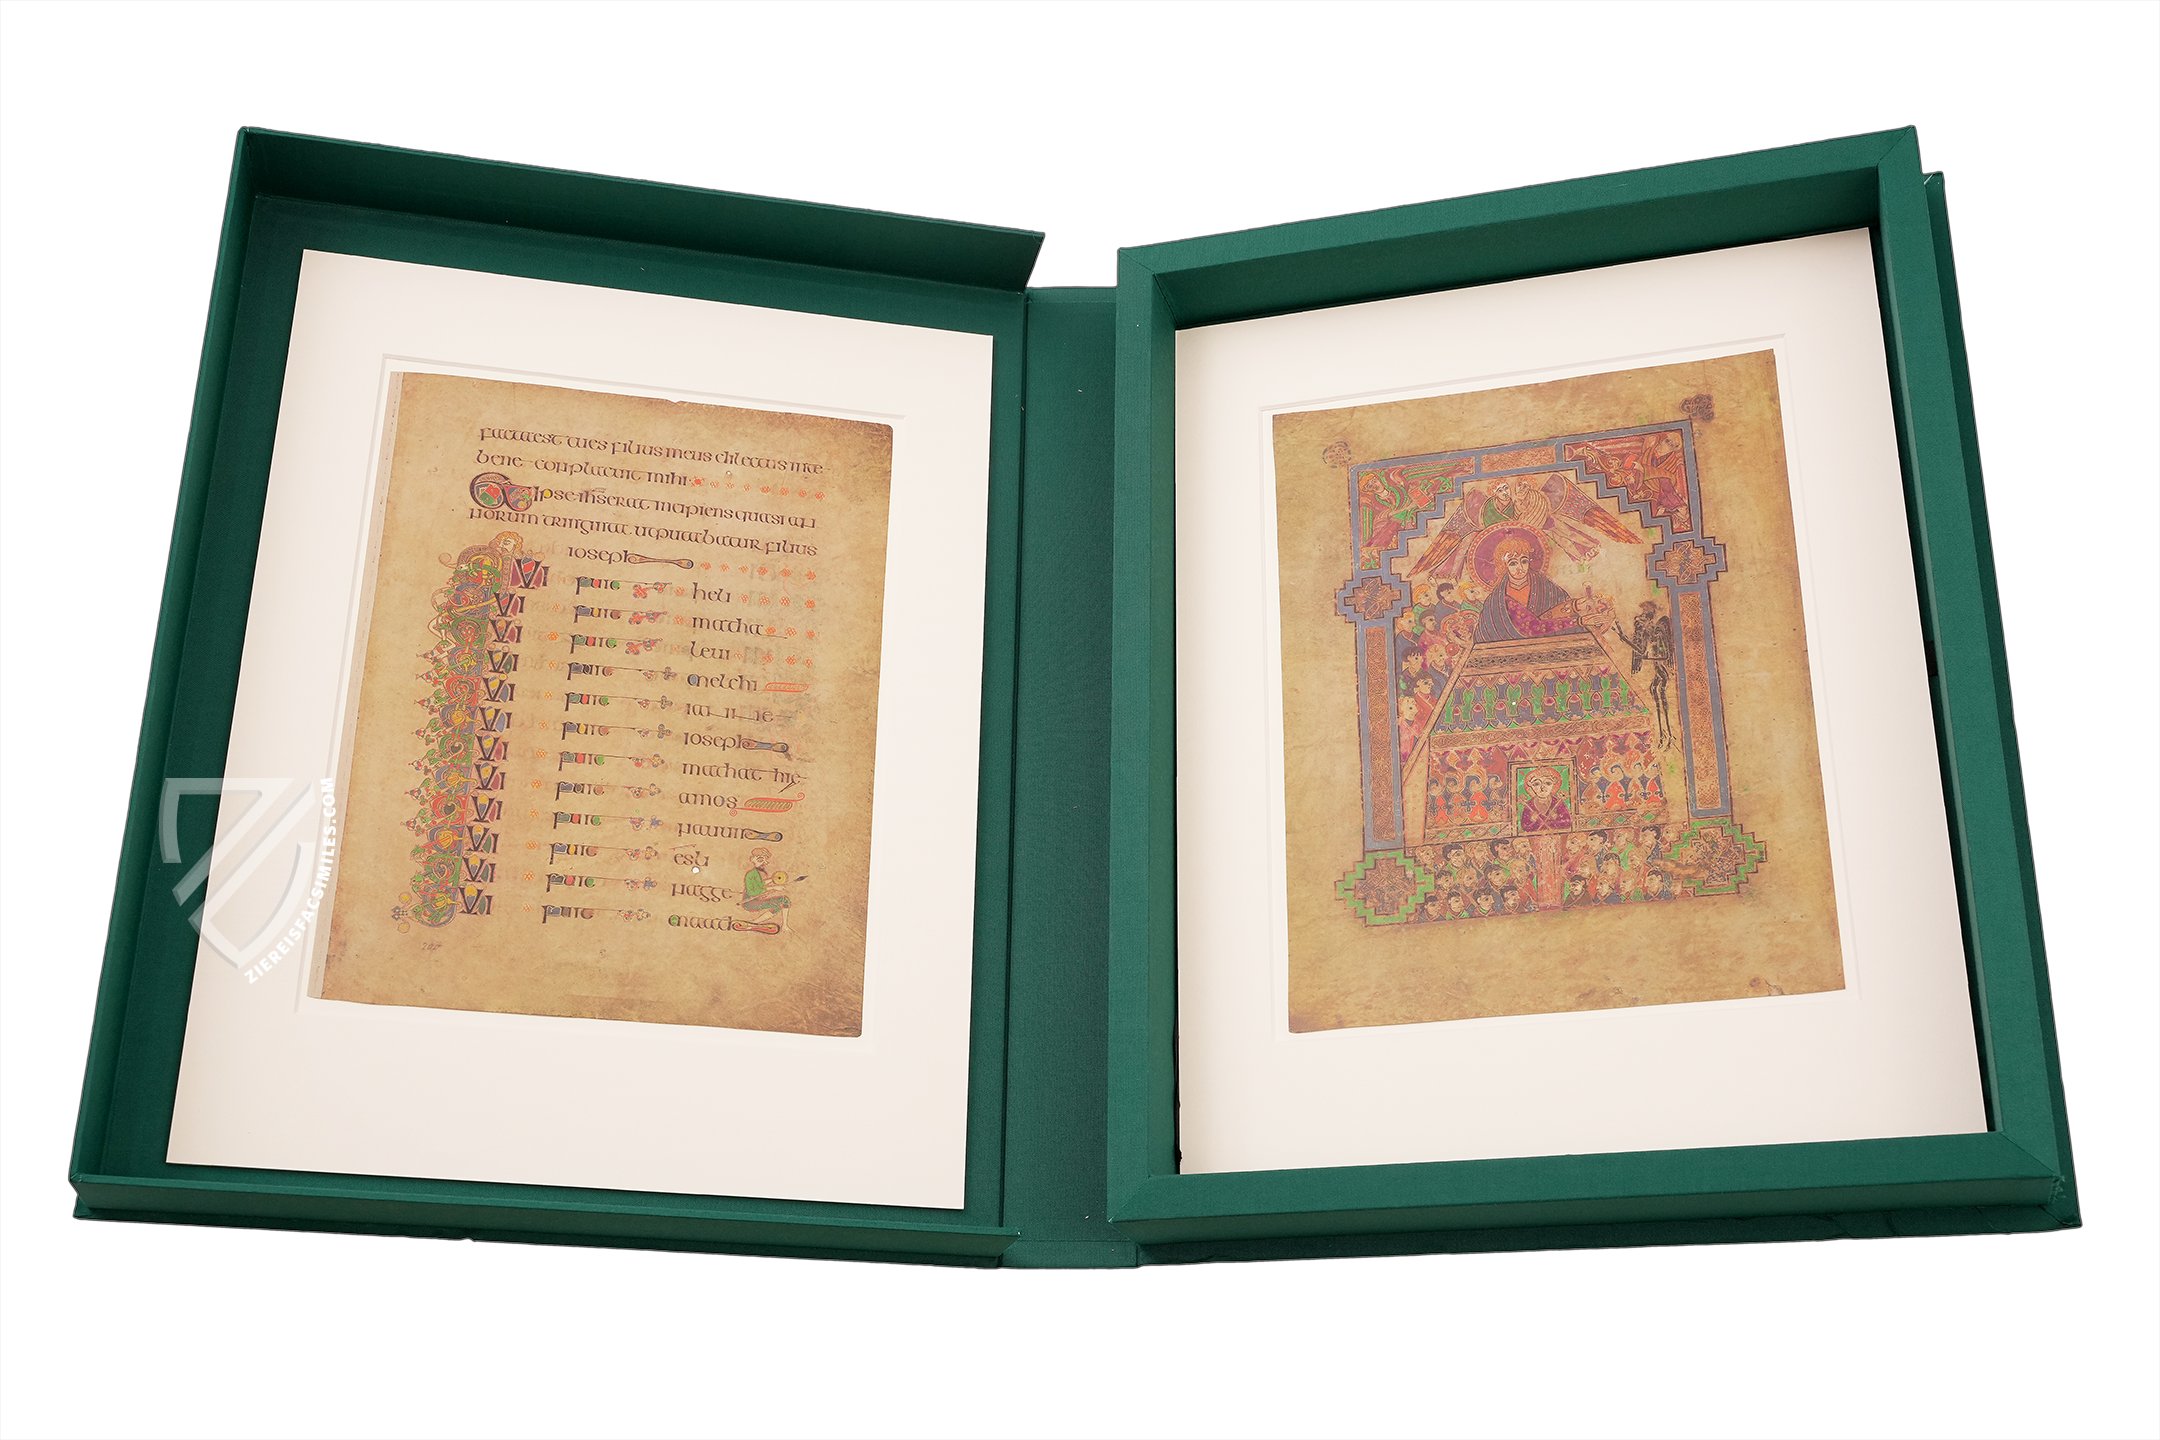 factaest tues filius meus dilectus inte
bene conplacuit mihi
Et ipse ihs erat incipiens quasi an
norum triginta utputabatur filius
ioseph
VI fuit heli
VI fuit matha
VI fuit leui
VI fuit melchi
VI fuit iannae
VI fuit ioseph
VI fuit mathathie
VI fuit amos
VI fuit nauum
VI fuit esli
VI fuit nagge
VI fuit maath
200
ZIEREISFACSIMILES.COM